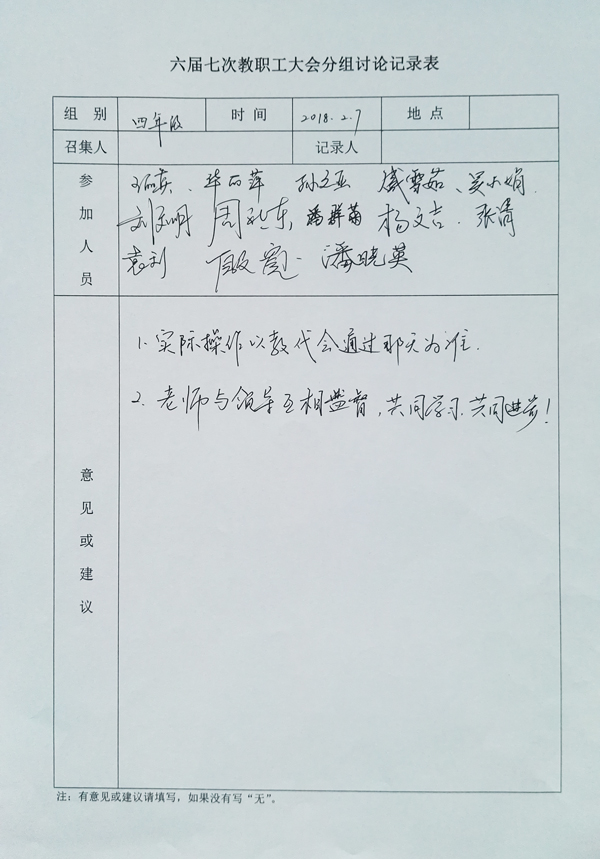 六届七次教职工大会分组讨论记录表
组 别 四年级 时 间 2018.2.7 地 点
召集人 记录人
参加人员
孙立亚 戚雪茹、吴小娟
刘文明 周 东, 潘群菊 杨文吉. 张涓
袁利 殷宽. 潘晓英
意见或建议
1. 实际操作以教代会通过那天为准.
2. 老师与领导互相监督,共同学习.共同进步!
注:有意见或建议请填写,如果没有写“无”。